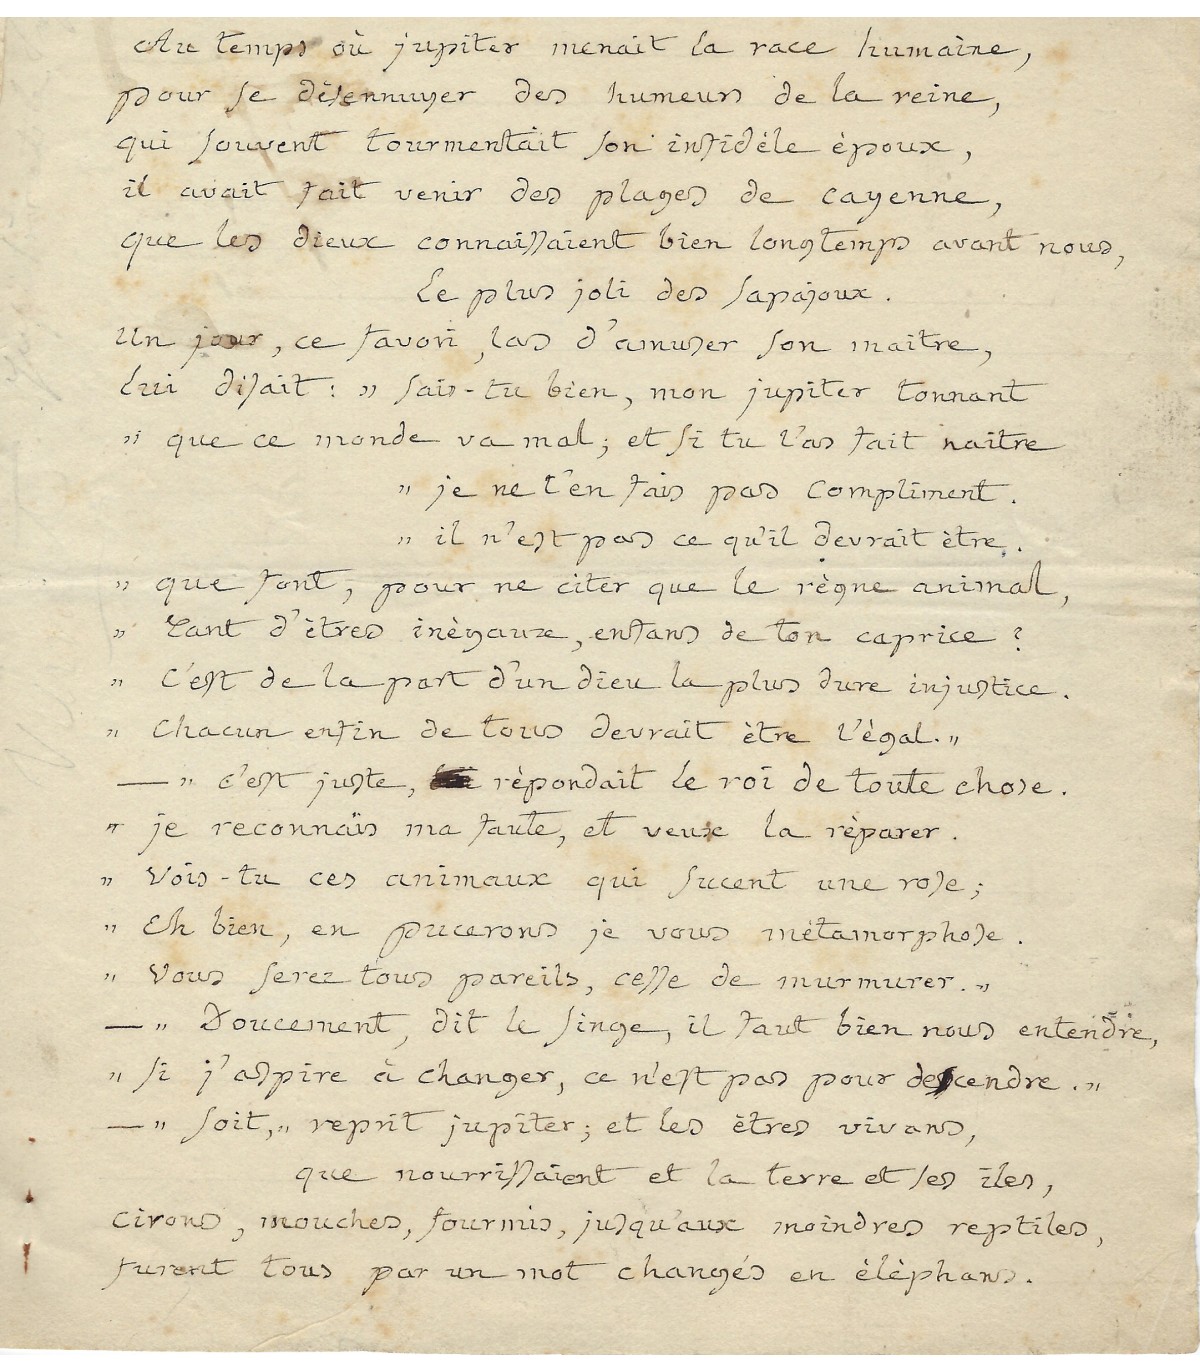 Au temps où jupiter menait la race humaine,
pour se désennuyer des humeurs de la reine,
qui souvent tourmentait son infidèle époux,
il avait fait venir des plages de cayenne,
que les dieux connaissaient bien longtemps avant nous,
Le plus joli des sapajoux.
Un jour, ce favori, las d'amuser son maître,
Lui disait : " sais-tu bien, mon jupiter tonnant
" que ce monde va mal; et si tu l'as fait naître
" je ne t'en fais pas compliment.
" il n'est pas ce qu'il devrait être.
" que font, pour ne citer que le règne animal,
" Tant d'êtres inégaux, enfans de ton caprice ?
" C'est de la part d'un dieu la plus dure injustice.
" Chacun enfin de tous devrait être l'égal."
— " c'est juste, répondait le roi de toute chose.
" je reconnais ma faute, et veux la réparer.
" Vois-tu ces animaux qui sucent une rose;
" Eh bien, en pucerons je vous métamorphose.
" Vous serez tous pareils, cesse de murmurer."
— " Doucement, dit le singe, il faut bien nous entendre,
" si j'aspire à changer, ce n'est pas pour descendre."
— " soit," reprit jupiter; et les êtres vivans,
que nourrissaient et la terre et ses îles,
cirons, mouches, fourmis, jusqu'aux moindres reptiles,
furent tous par un mot changés en éléphans.